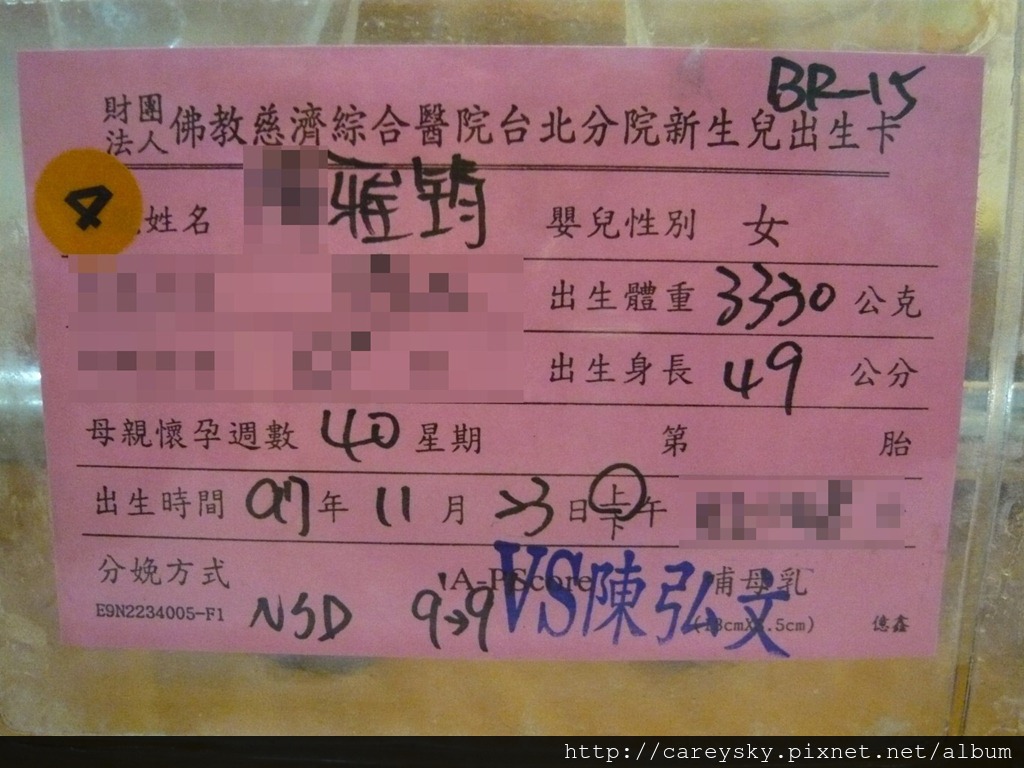 BR-15
財團法人佛教慈濟綜合醫院台北分院新生兒出生卡
8
姓名 雅筠 嬰兒性別 女
出生體重 3330 公克
出生身長 49 公分
母親懷孕週數 40 星期 第 胎
出生時間 97 年 11 月 23 日 上下午
分娩方式 NSD A-PScore 9→9 哺母乳
VS陳弘文
E9N2234005-F1 億鑫
http://careysky.pixnet.net/album